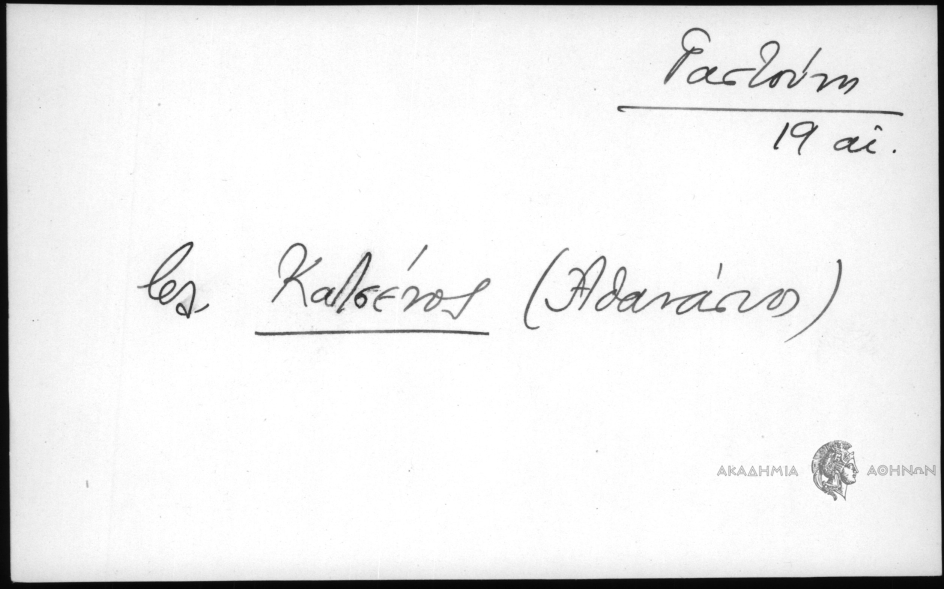 Γαστούνη
19 αἰ.
βλ. Κατσένος (Ἀθανάσιος)
ΑΚΑΔΗΜΙΑ ΑΘΗΝΩΝ